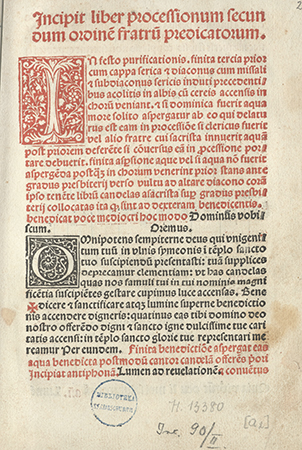 Incipit liber processionum secun
dum ordinẽ fratrũ predicatorum.
2
IN festo purificationis. finita tercia prior
cum cappa serica ⁊ diaconus cum missali
⁊ subdiaconus sericis induti precedentibus
acolitis in albis cũ cereis accensis in
chorũ veniant. ⁊ si dominica fuerit aqua
more solito aspergatur ab eo qui delatu
rus est eam in processiõe si clericus fuerit
vel alio fratre cui sacrista innuerit aqua
post priorem deferẽte si diversus eã in processione por
tare debuerit. finita aspsione aque vel si aqua nõ fuerit
aspergẽda postq̃ȝ in chorum venerint prior stans ante
gradus presbiterii verso vultu ad altare diacono corã
ipso tenẽte librũ candelas ante sacristã super gradus presbi
terii collocatas ita qȝ sint ad dexteram benedicentis.
benedicat voce mediocri hoc modo Dominus vobi
scum. Oremus.
OMnipotens sempiterne deus qui unigeni
tum tuũ in ulnis symeonis ĩ tẽplo sancto
tuo suscipiendũ presentasti: tuã supplices
deprecamur clementiam: vt has candelas
quas nos famuli tui in tui nominis magni
ficẽtia suscipiẽtes gestare cupimus luce accensas. Bene
✠dicere ⁊ sanctificare atqȝ lumine superne benedictio
nis accendere digneris: quatinus eas tibi domino deo
nostro offerẽdo digni ⁊ sancto igne dulcissime tue cari
tatis accensi: in tẽplo sancto glorie tue representari me
reamur Per eundem. Finita benedictiõe aspergat eas
aqua benedicta postmodũ cantor cantelã offerẽs pori
Incipiat antiphonã Lumen ad reuelationẽ, conuẽtus
BIBLIOTEKA
H. 13380
Inc. 90/II